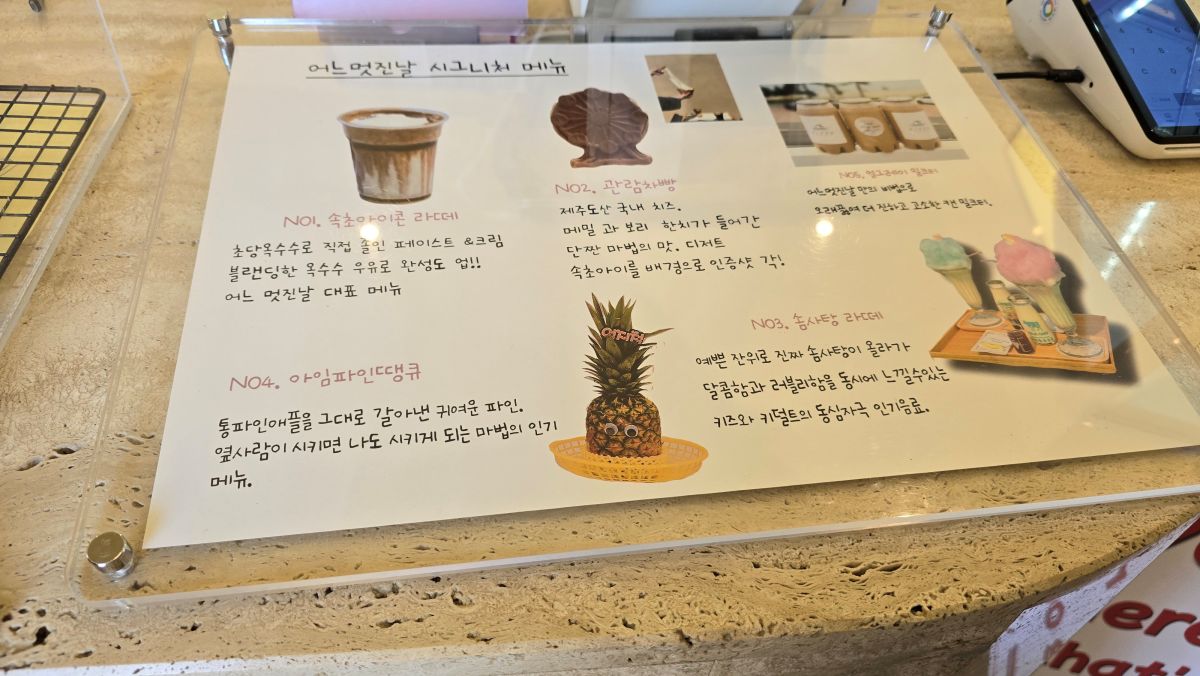 어느멋진날 시그니처 메뉴
NO1. 속초아이콘 라떼
초당옥수수로 직접 졸인 페이스트 &크림
블랜딩한 옥수수 우유로 완성도 업!!
어느 멋진날 대표 메뉴
NO2. 관람차빵
제주도산 국내 치즈.
메밀 과 보리 한치가 들어간
단짠 마법의 맛. 디저트
속초아이를 배경으로 인증샷 각!
NO5. 얼그레이 밀크티
어느멋진날 만의 비법으로
오래끓여 더 진하고 고소한 캔 밀크티.
NO3. 솜사탕 라떼
예쁜 잔위로 진짜 솜사탕이 올라가
달콤함과 러블리함을 동시에 느낄수있는
키즈와 키덜트의 동심자극 인기음료.
NO4. 아임파인땡큐
통파인애플을 그대로 갈아낸 귀여운 파인.
옆사람이 시키면 나도 시키게 되는 마법의 인기
메뉴.